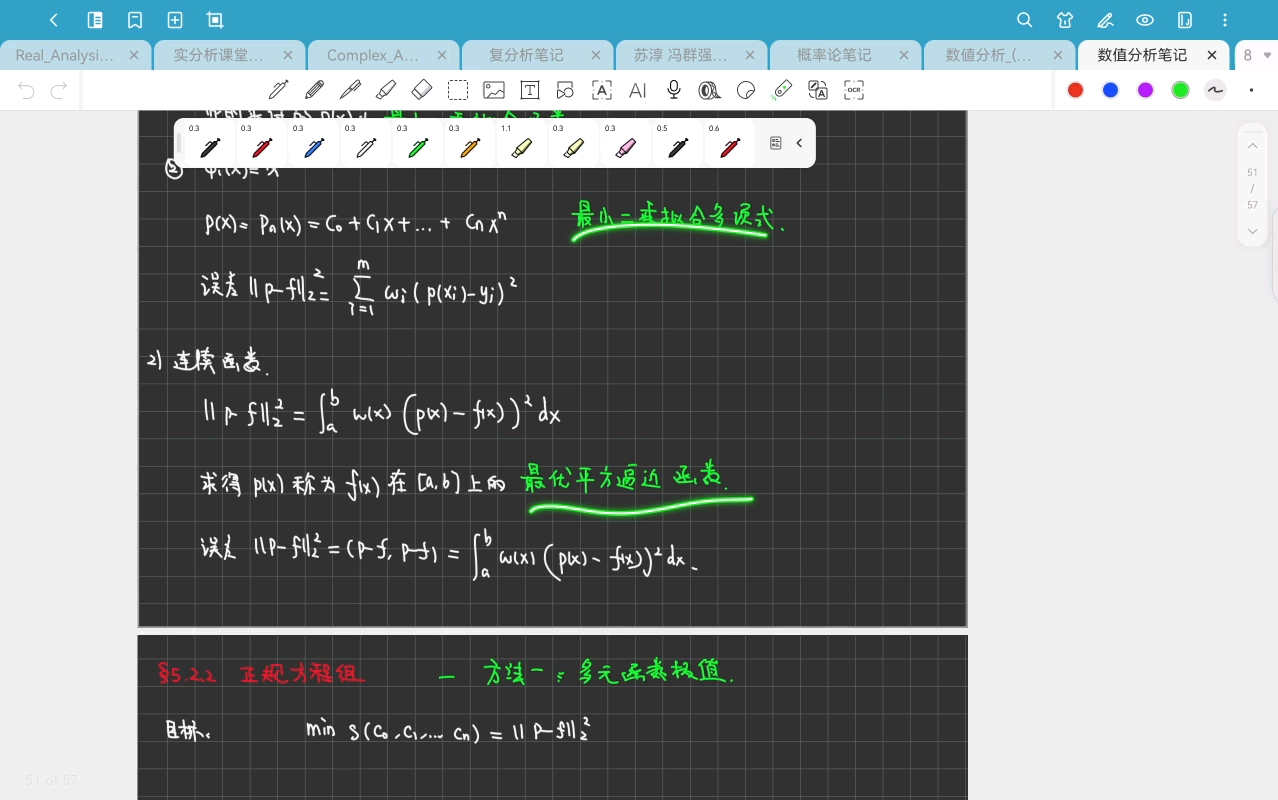 Real_Analysi... × 实分析课堂... × Complex_A... × 复分析笔记 × 苏淳 冯群强... × 概率论笔记 × 数值分析_(... × 数值分析笔记 × 8
T A AI A OCR
0.3 0.3 0.3 0.3 0.3 0.3 1.1 0.3 0.3 0.5 0.6
51
/
57
② φi(x)=x
p(x)= Pn(x) = C0 + C1x + ... + Cn x^n 最小二乘拟合多项式.
误差 ||p-f||₂² = ∑_{i=1}^{m} ωi ( p(xi) - yi )²
2) 连续函数.
||p-f||₂² = ∫_a^b w(x) (p(x) - f(x))² dx
求得 p(x) 称为 f(x) 在 [a,b] 上的 最优平方逼近函数.
误差 ||p-f||₂² = (p-f, p-f) = ∫_a^b w(x) (p(x) - f(x))² dx.
§5.2.2 正规方程组 — 方法一: 多元函数极值.
目标. min S(C0, C1, ... Cn) = ||p-f||₂²
51 of 57